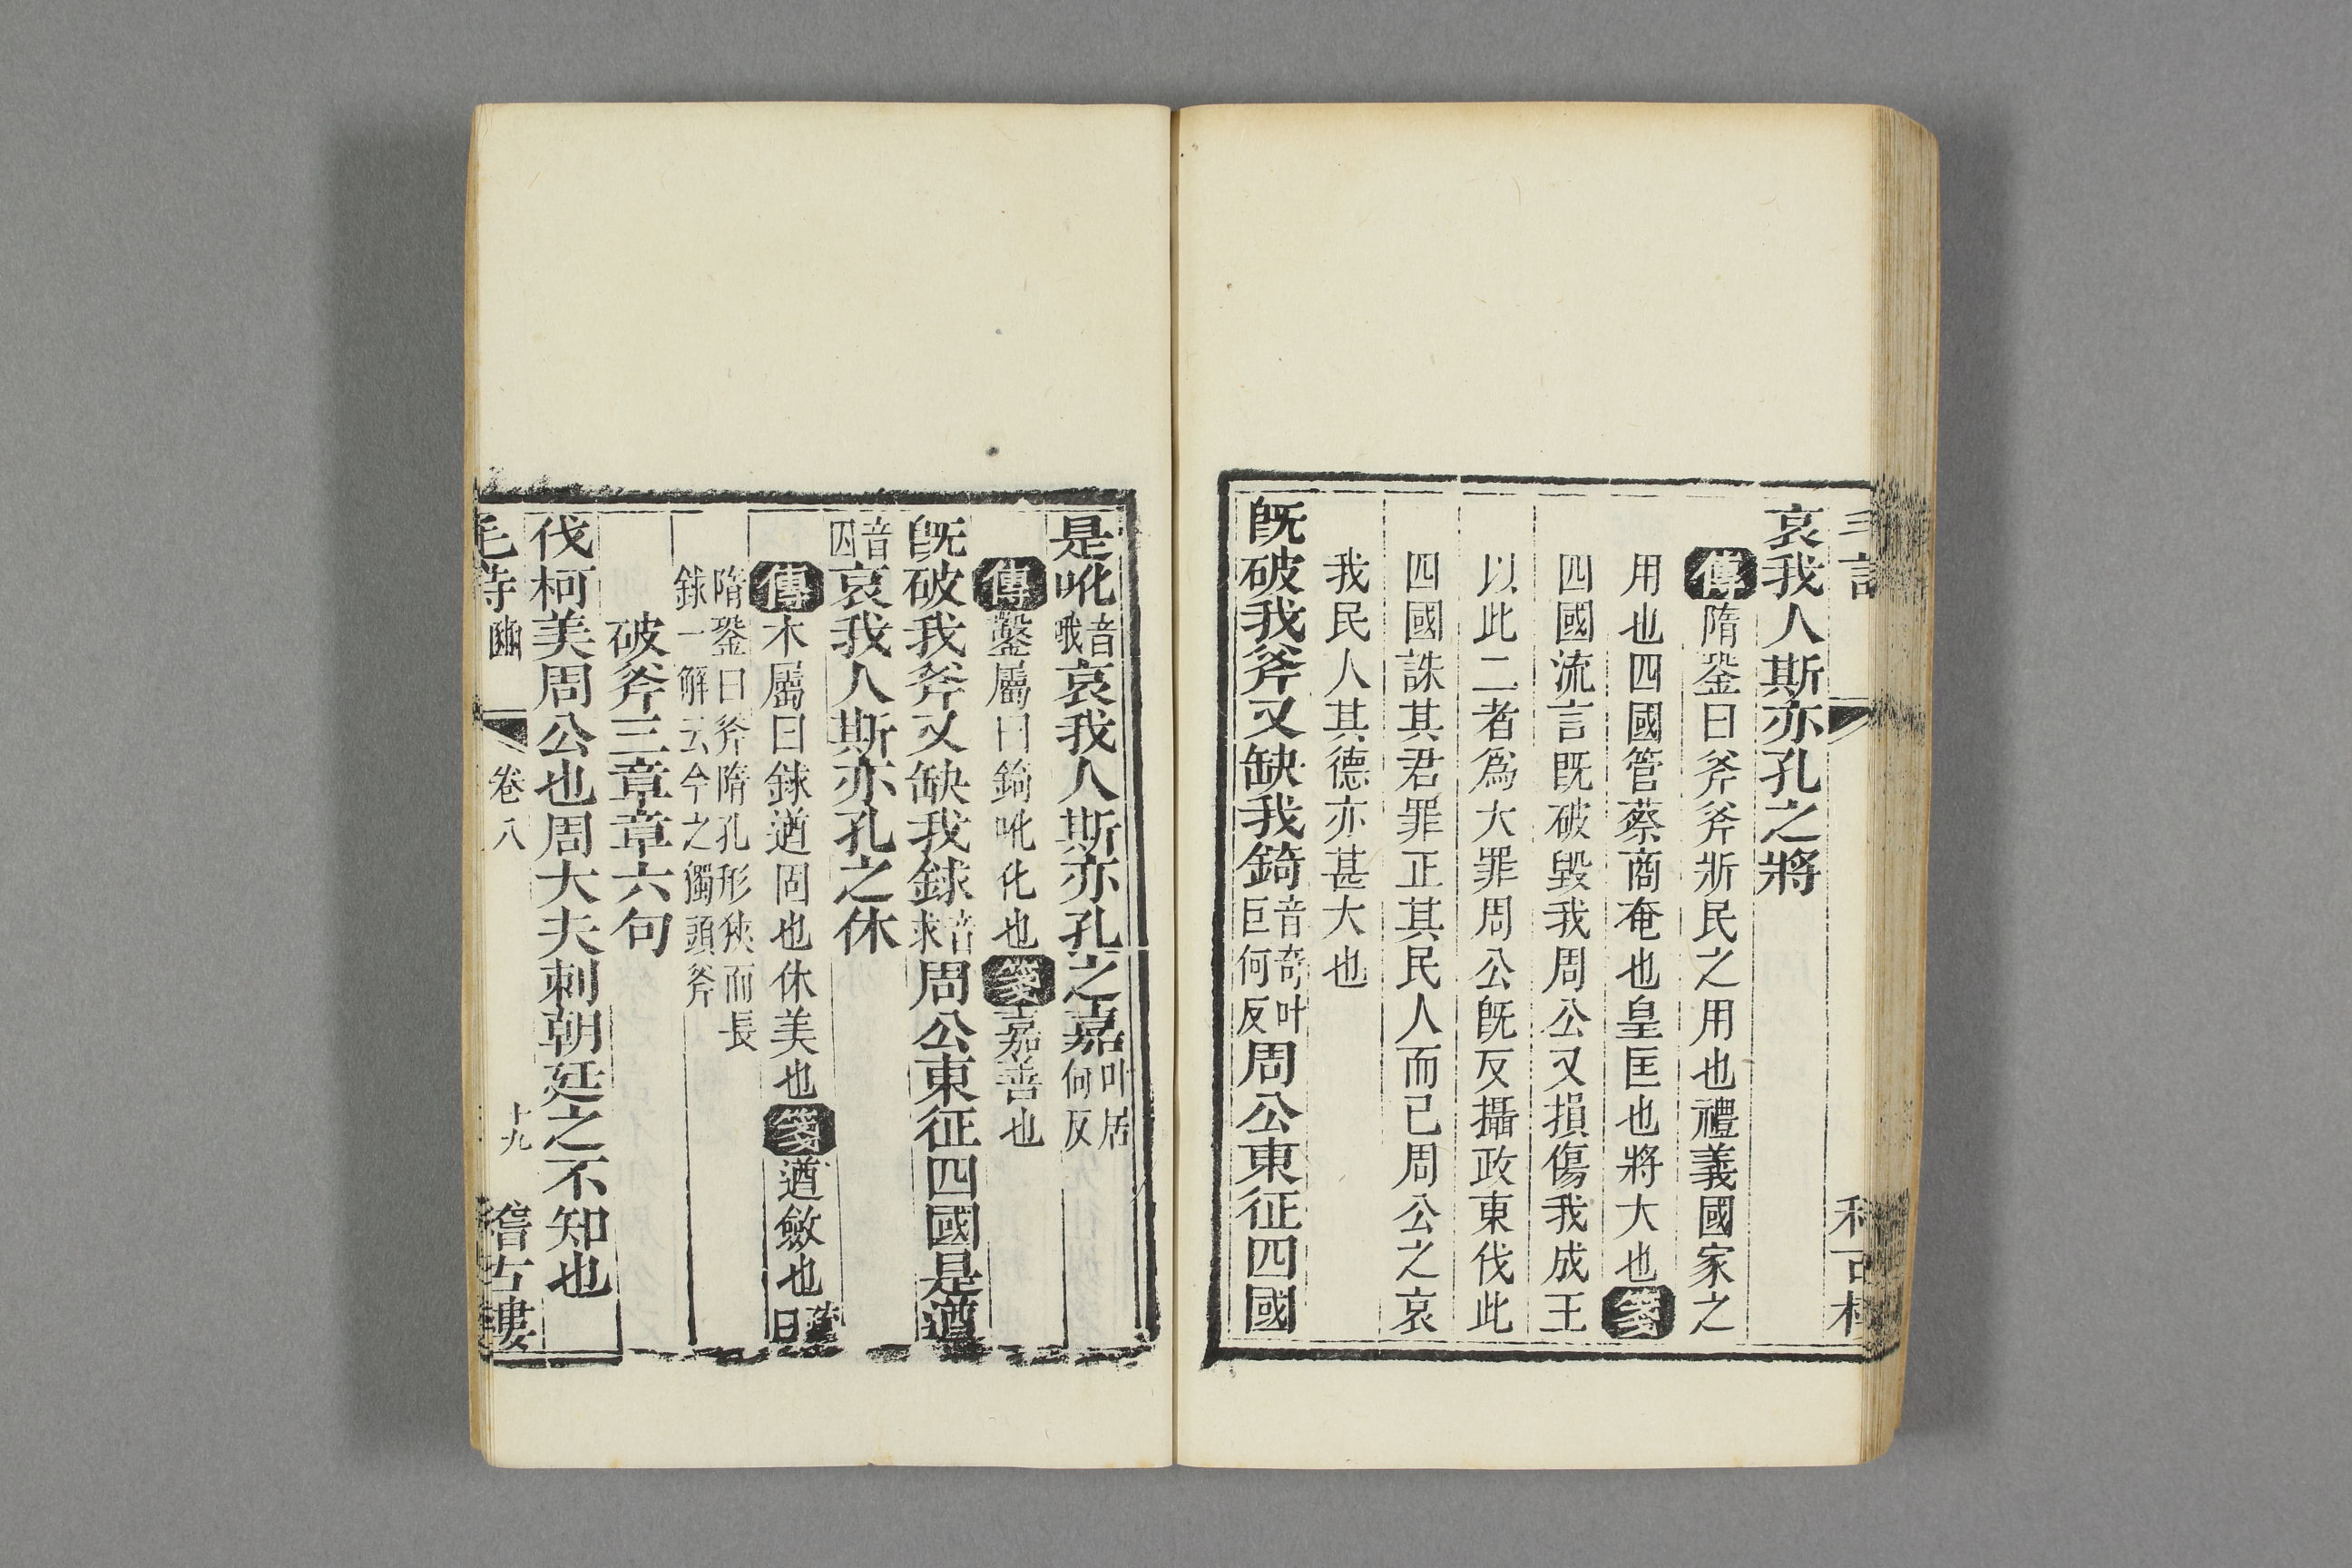 哀我人斯亦孔之將
傳隋銎曰斧斧斨民之用也禮義國家之
用也四國管蔡商奄也皇匡也將大也箋
四國流言既破毀我周公又損傷我成王
以此二者爲大罪周公既反攝政東伐此
四國誅其君罪正其民人而已周公之哀
我民人其德亦甚大也
既破我斧又缺我錡音奇叶巨何反周公東征四國
是吪音哦哀我人斯亦孔之嘉叶居何反
傳鑿屬曰錡吪化也箋嘉善也
既破我斧又缺我銶音求周公東征四國是遒
音囚哀我人斯亦孔之休
傳木屬曰銶遒固也休美也箋遒斂也
隋銎曰斧隋孔形狹而長
銶一解云今之獨頭斧
破斧三章章六句
伐柯美周公也周大夫刺朝廷之不知也
毛詩豳 卷八 十九 稽古樓